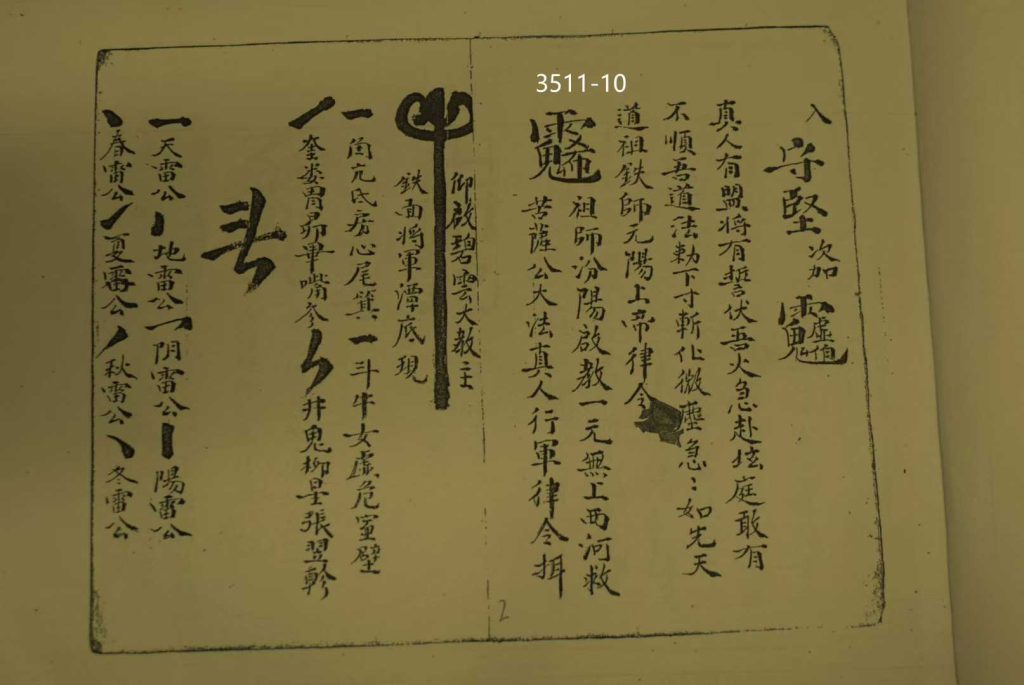 3511-10
入
守堅 次加 虛危
真人有盟将有誓伏吾火急赴坛庭敢有
不順吾道法勅下寸斬化微塵急〻如先天
道祖鉄師元陽上帝律令
祖師汾陽啟教一元無上西河救
苦薩公大法真人行軍律令揖
仰啟碧雲大教主
鉄面将軍潭底現
一角亢氐房心尾箕一斗牛女虚危室壁
奎娄胃昴畢嘴参 井鬼柳星張翌軫
天雷公 地雷公 阴雷公 陽雷公
春雷公 夏雷公 秋雷公 冬雷公
2